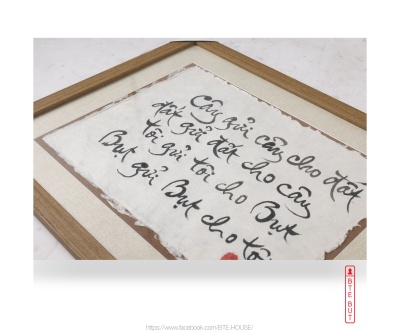 Cây gửi cây cho đất
đất gửi đất cho cây
tôi gửi tôi cho Bụt
Bụt gửi Bụt cho tôi
BTE BUT
https://www.facebook.com/BTE.HOUSE/